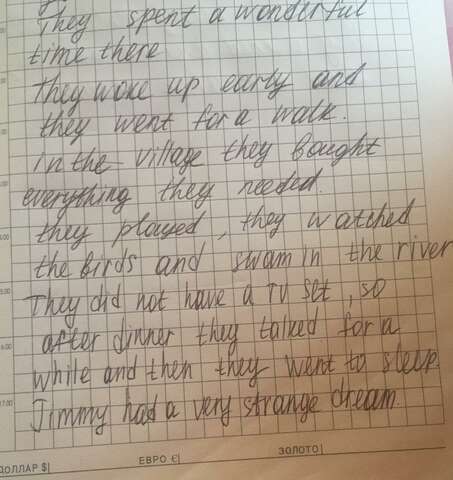 They spent a wonderful
time there
They woke up early and
they went for a walk.
In the village they bought
everything they needed.
they played, they watched
the birds and swam in the river
They did not have a TV set, so
after dinner they talked for a
while and then they went to sleep.
Jimmy had a very strange dream.
ДОЛЛАР $ ЕВРО € ЗОЛОТО